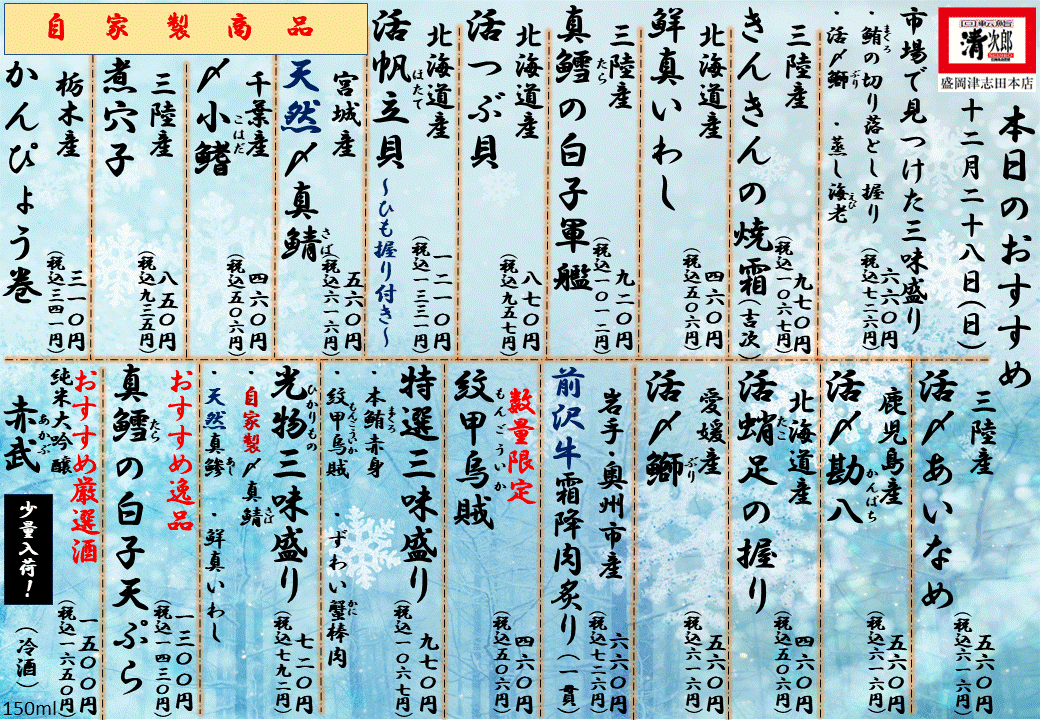 回転鮨
清次郎
盛岡津志田本店
本日のおすすめ
十二月二十八日(日)
市場で見つけた三味盛り
・鮪の切り落とし握り
まぐろ
・活〆鰤 ・蒸し海老
ぶり
えび
六六〇円
(税込七二六円)
三陸産
きんきんの焼霜(吉次)
九七〇円
(税込一〇六七円)
北海道産
鮮真いわし
四六〇円
(税込五〇六円)
三陸産
真鱈の白子軍艦
たら
九二〇円
(税込一〇一二円)
北海道産
活つぶ貝
八七〇円
(税込九五七円)
北海道産
活帆立貝 ~ひも握り付き~
ほたて
一二一〇円
(税込一三三一円)
自家製商品
宮城産
天然〆真鯖
さば
五六〇円
(税込六一六円)
千葉産
〆小鰭
こはだ
四六〇円
(税込五〇六円)
三陸産
煮穴子
八五〇円
(税込九三五円)
栃木産
かんぴょう巻
三一〇円
(税込三四一円)
三陸産
活〆あいなめ
五六〇円
(税込六一六円)
鹿児島産
活〆勘八
かんぱち
五六〇円
(税込六一六円)
北海道産
活蛸足の握り
たこ
四六〇円
(税込五〇六円)
愛媛産
活〆鰤
ぶり
五六〇円
(税込六一六円)
岩手・奥州市産
前沢牛霜降肉炙り(一貫)
六六〇円
(税込七二六円)
数量限定
紋甲烏賊
もんごういか
四六〇円
(税込五〇六円)
特選三味盛り
・本鮪赤身
まぐろ
・紋甲烏賊 ・ずわい蟹棒肉
もんごういか
かに
九七〇円
(税込一〇六七円)
光物三味盛り
ひかりもの
・自家製〆真鯖
さば
・天然真鯵 ・鮮真いわし
あじ
七二〇円
(税込七九二円)
おすすめ逸品
真鱈の白子天ぷら
たら
一三〇〇円
(税込一四三〇円)
おすすめ厳選酒
純米大吟醸
赤武
あかぶ
少量入荷!
(冷酒)
一五〇〇円
(税込一六五〇円)
150ml